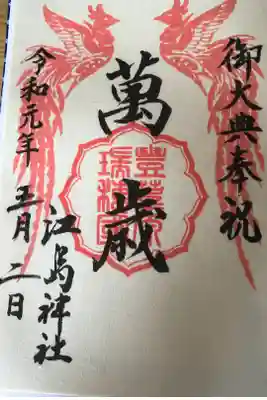 御大典奉祝
萬歳
豊葦原
瑞穂国
令和元年
五月二日
江島神社